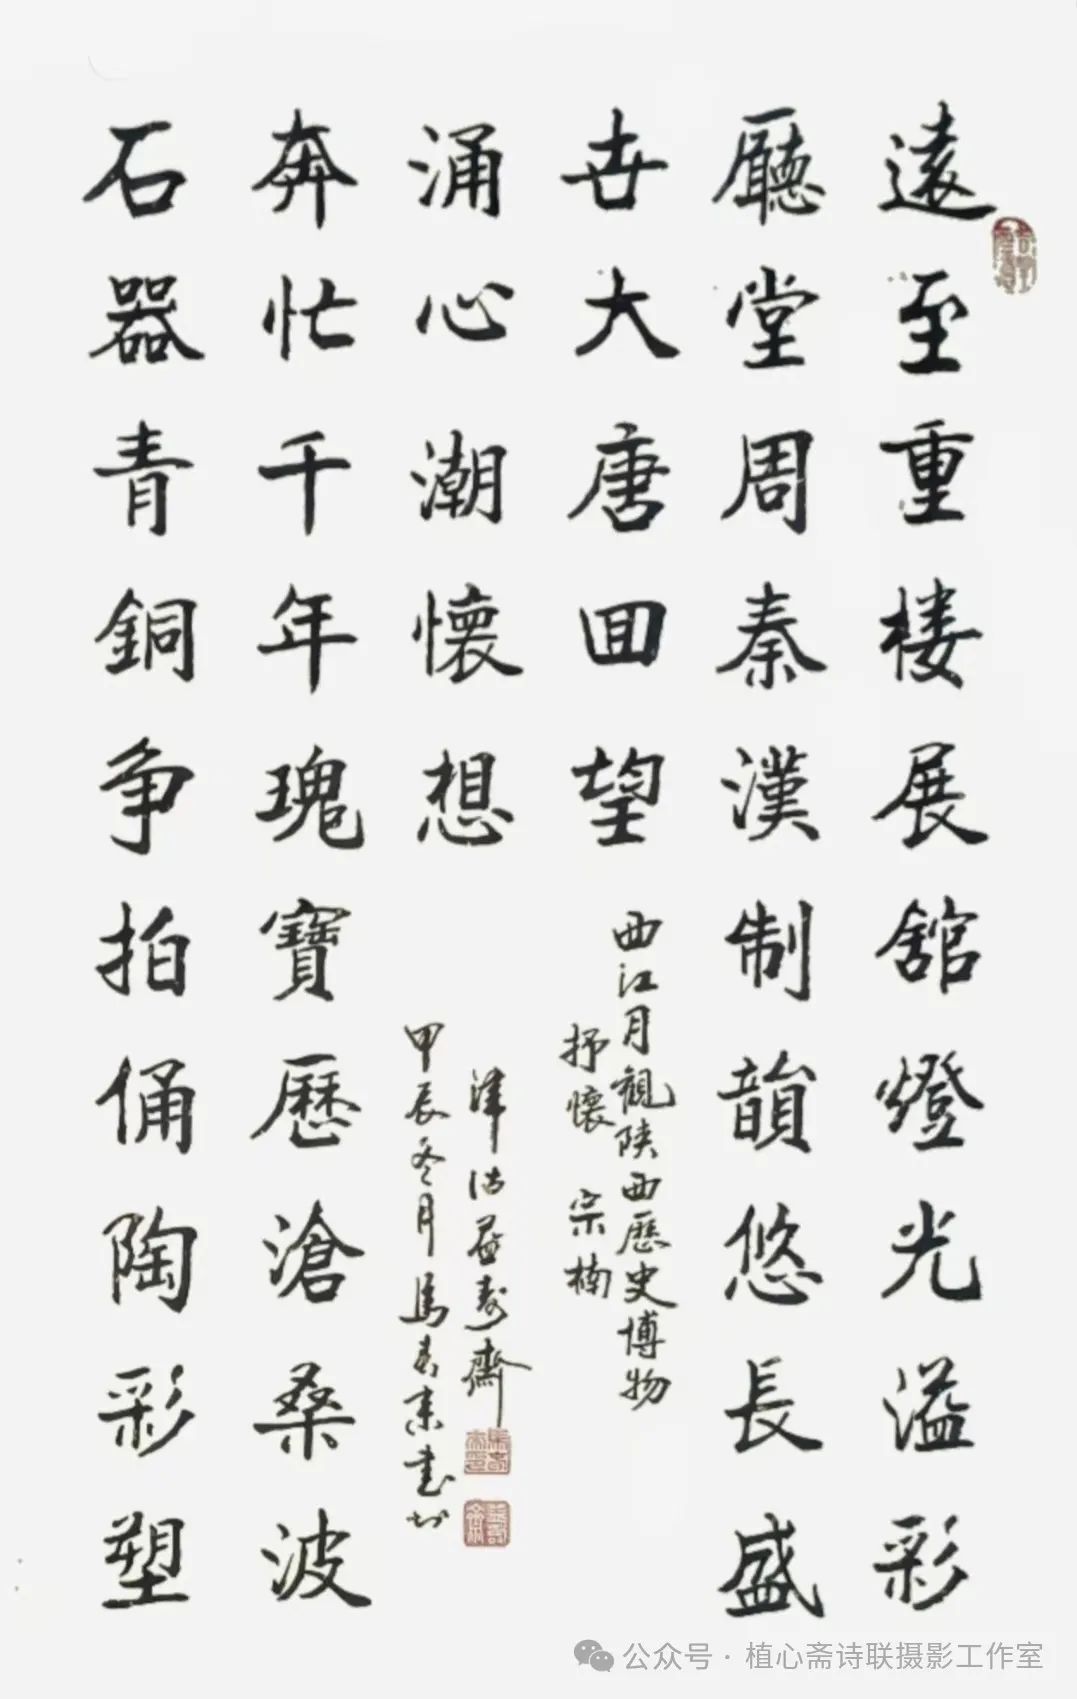 石器青銅争拍俑陶彩塑
奔忙千年瑰寶歷滄桑波
涌心潮懷想
甲辰冬月馬書於
津沽益壽齋
遠至重楼展舘燈光溢彩
廳堂周秦漢制韻悠長盛
世大唐回望
西江月觀陕西歷史博物
抒懷 宗楠
公众号·植心斋诗联摄影工作室